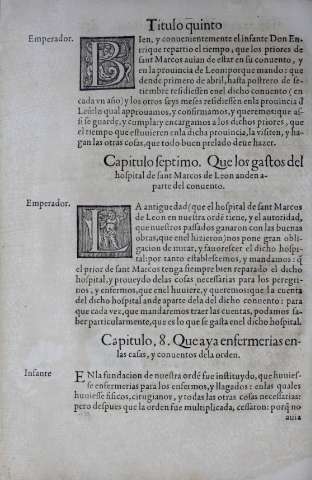 Titulo quinto
Emperador.
BIen, y conuenientemente el infante Don En-
rrique repartio el tiempo, que los priores de
sant Marcos auian de estar en su conuento, y
en la prouincia de Leon: porque mando: que
dende primero de abril, hasta postrero de se-
tiembre residiessen enel dicho conuento (en
cada vn año) y los otros seys meses residiessen enla prouincia d
Leõ: lo qual approuamos, y confirmamos, y queremos que as-
si se guarde, y cumpla: y encargamos a los dichos priores, que
el tiempo que estuuieren enla dicha prouincia, la visiten, y ha-
gan las otras cosas, que todo buen prelado deue hazer.
Capitulo septimo. Que los gastos del
hospital de sant Marcos de Leon anden a-
parte del conuento.
Emperador.
LA antiguedad (que el hospital de sant Marcos
de Leon en nuestra ordẽ tiene, y el autoridad,
que nuestros passados ganaron con las buenas
obras, que enel hizieron) nos pone gran obli-
gacion de mirar, y fauorescer el dicho hospi-
tal: por tanto establescemos, y mandamos: q̃
el prior de sant Marcos tenga siempre bien reparado el dicho
hospital, y proueydo delas cosas necessarias para los peregri-
nos, y enfermos, que enel huuiere, y queremos que la cuenta
del dicho hospital ande aparte dela del dicho conuento: para
que cada vez, que mandaremos traer las cuentas, podamos sa-
ber particularmente, que es lo que se gasta enel dicho hospital.
Capitulo, 8. Que aya enfermerias en-
las casas, y conuentos dela orden.
Infante
ENla fundacion de nuestra ordẽ fue instituydo, que huuies-
se enfermerias para los enfermos, y llagados: enlas quales
huuiesse fisicos, cirugianos, y todas las otras cosas necessarias:
pero despues que la orden fue multiplicada, cessaron: porq̃ no
auia